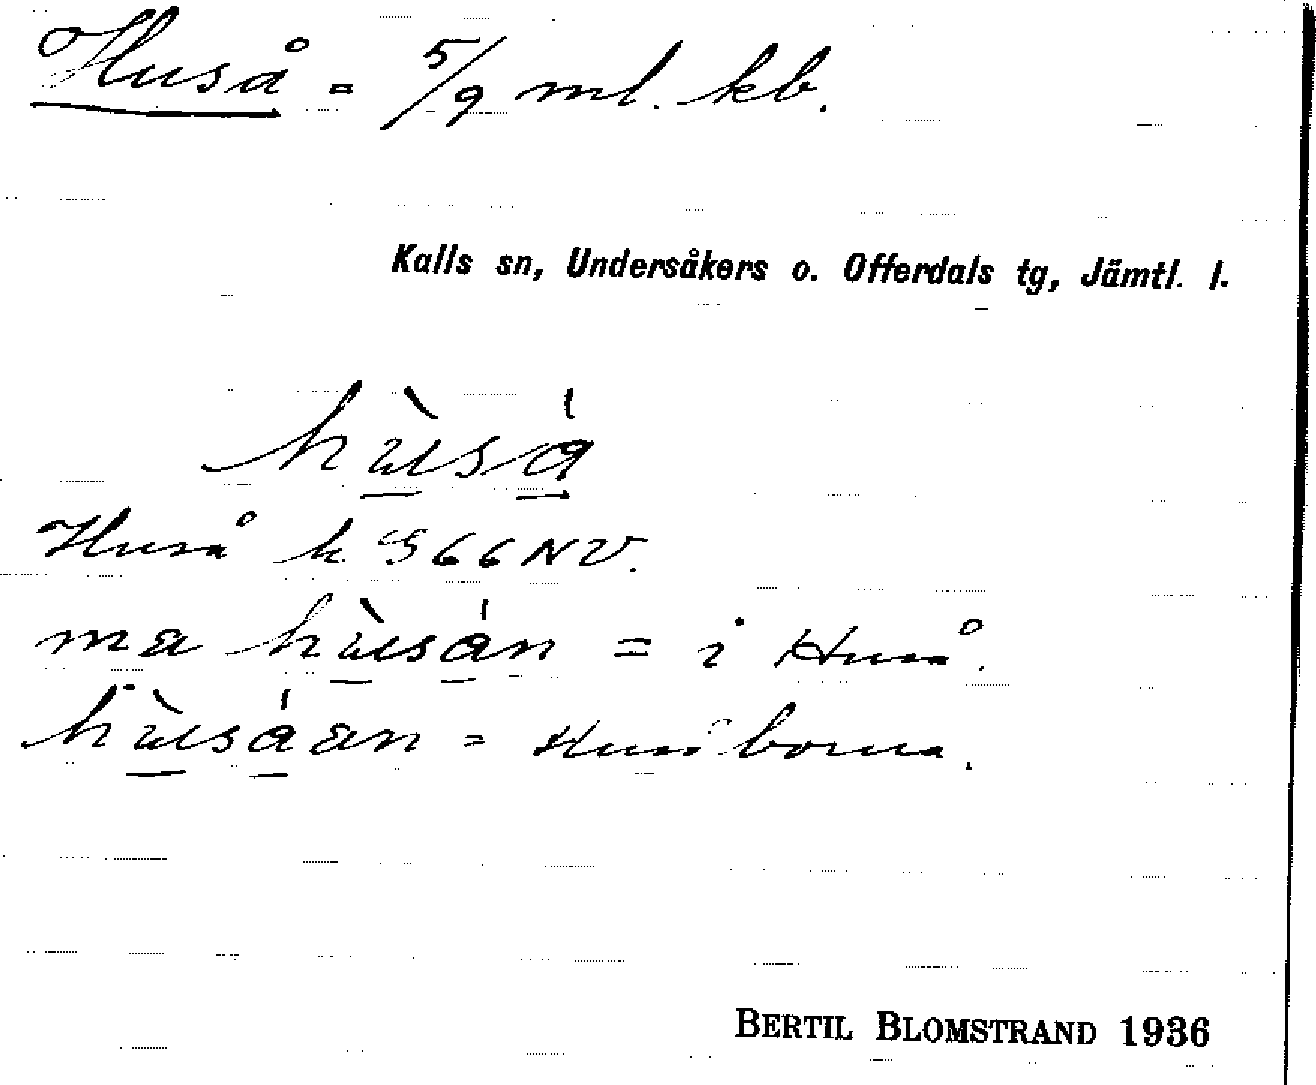 Huså = 5/9 ml. kb.
Kalls sn, Undersåkers o. Offerdals tg, Jämtl. l.
hùsá
Huså k. G 66 NV.
ma hùsán = i Huså.
hùsáan = Husåborna.
BERTIL BLOMSTRAND 1936